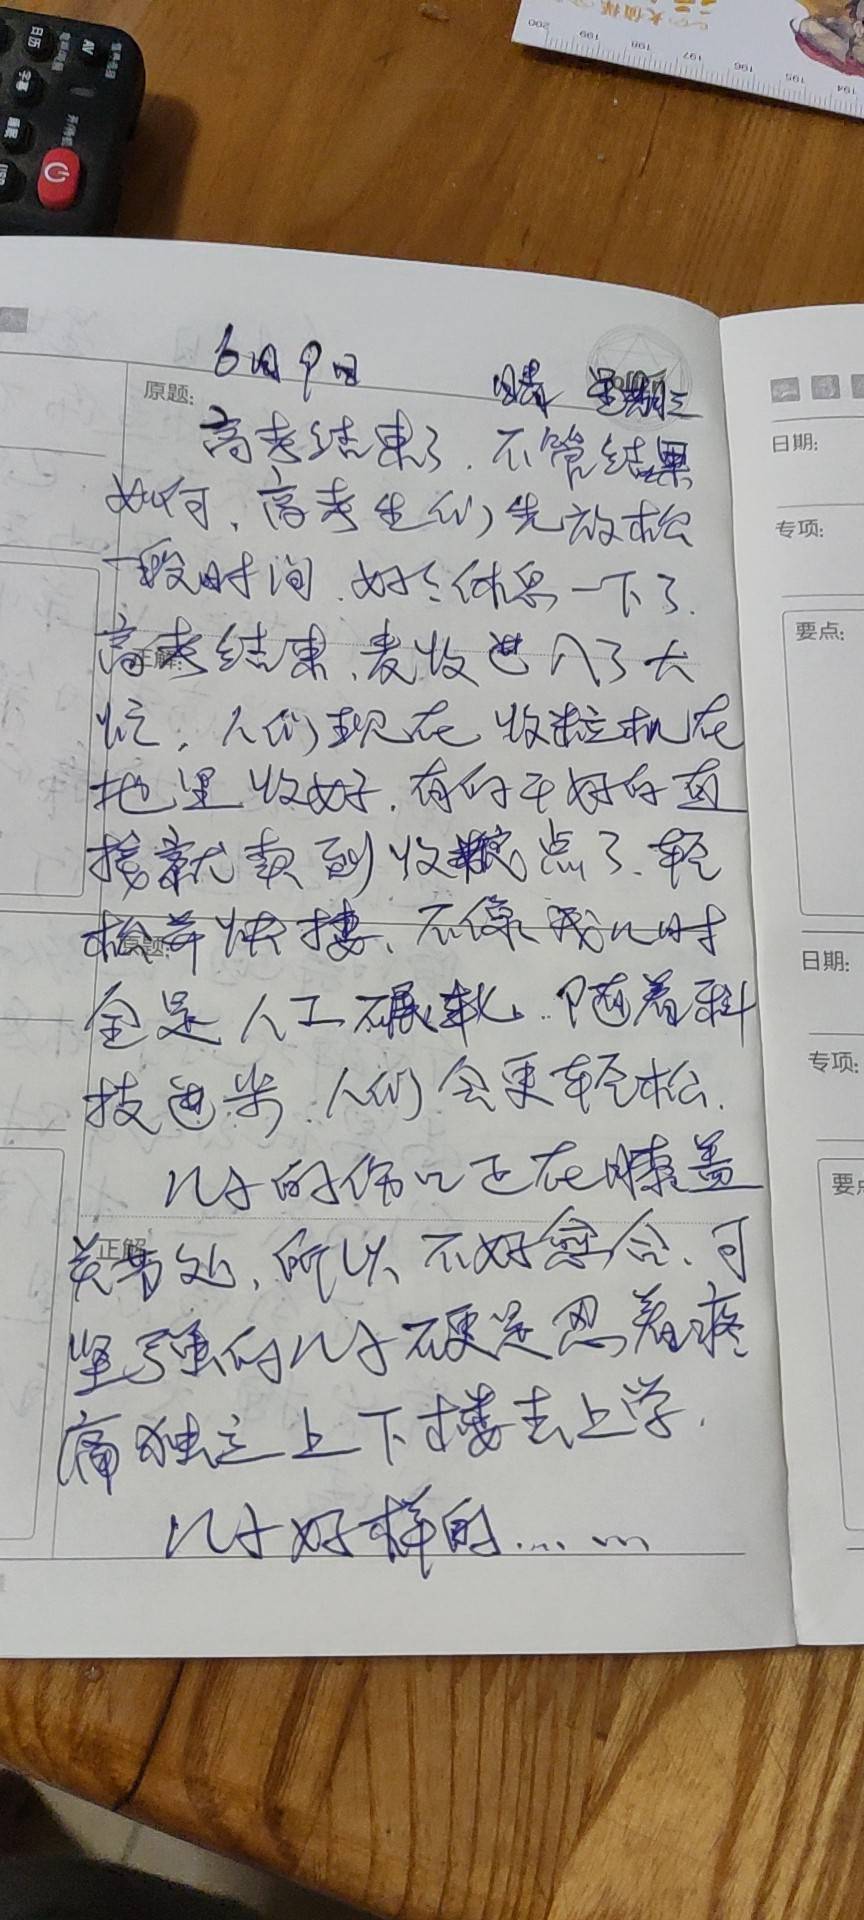 AV
日历
字幕
USB
大侦探
200 199 198 197 196 195 194
6月9日 晴 星期三
原题:
高考结束了.不管结果
如何、高考生们先放松
一段时间.好好休息一下了.
高考结束、麦收进入了大
正解:
忙，人们现在收粒机在
地里收好.有的干好的直
接就卖到收粮点了.轻
松并快捷、不像我儿时
原题:
全是人工碾轧.随着科
技进步.人们会更轻松.
儿子的伤口正在膝盖
正解
关节处，所以不好愈合、可
坚强的儿子硬是忍着疼
痛独立上下楼去上学.
儿子好样的……
日期:
专项:
要点:
日期:
专项:
要点